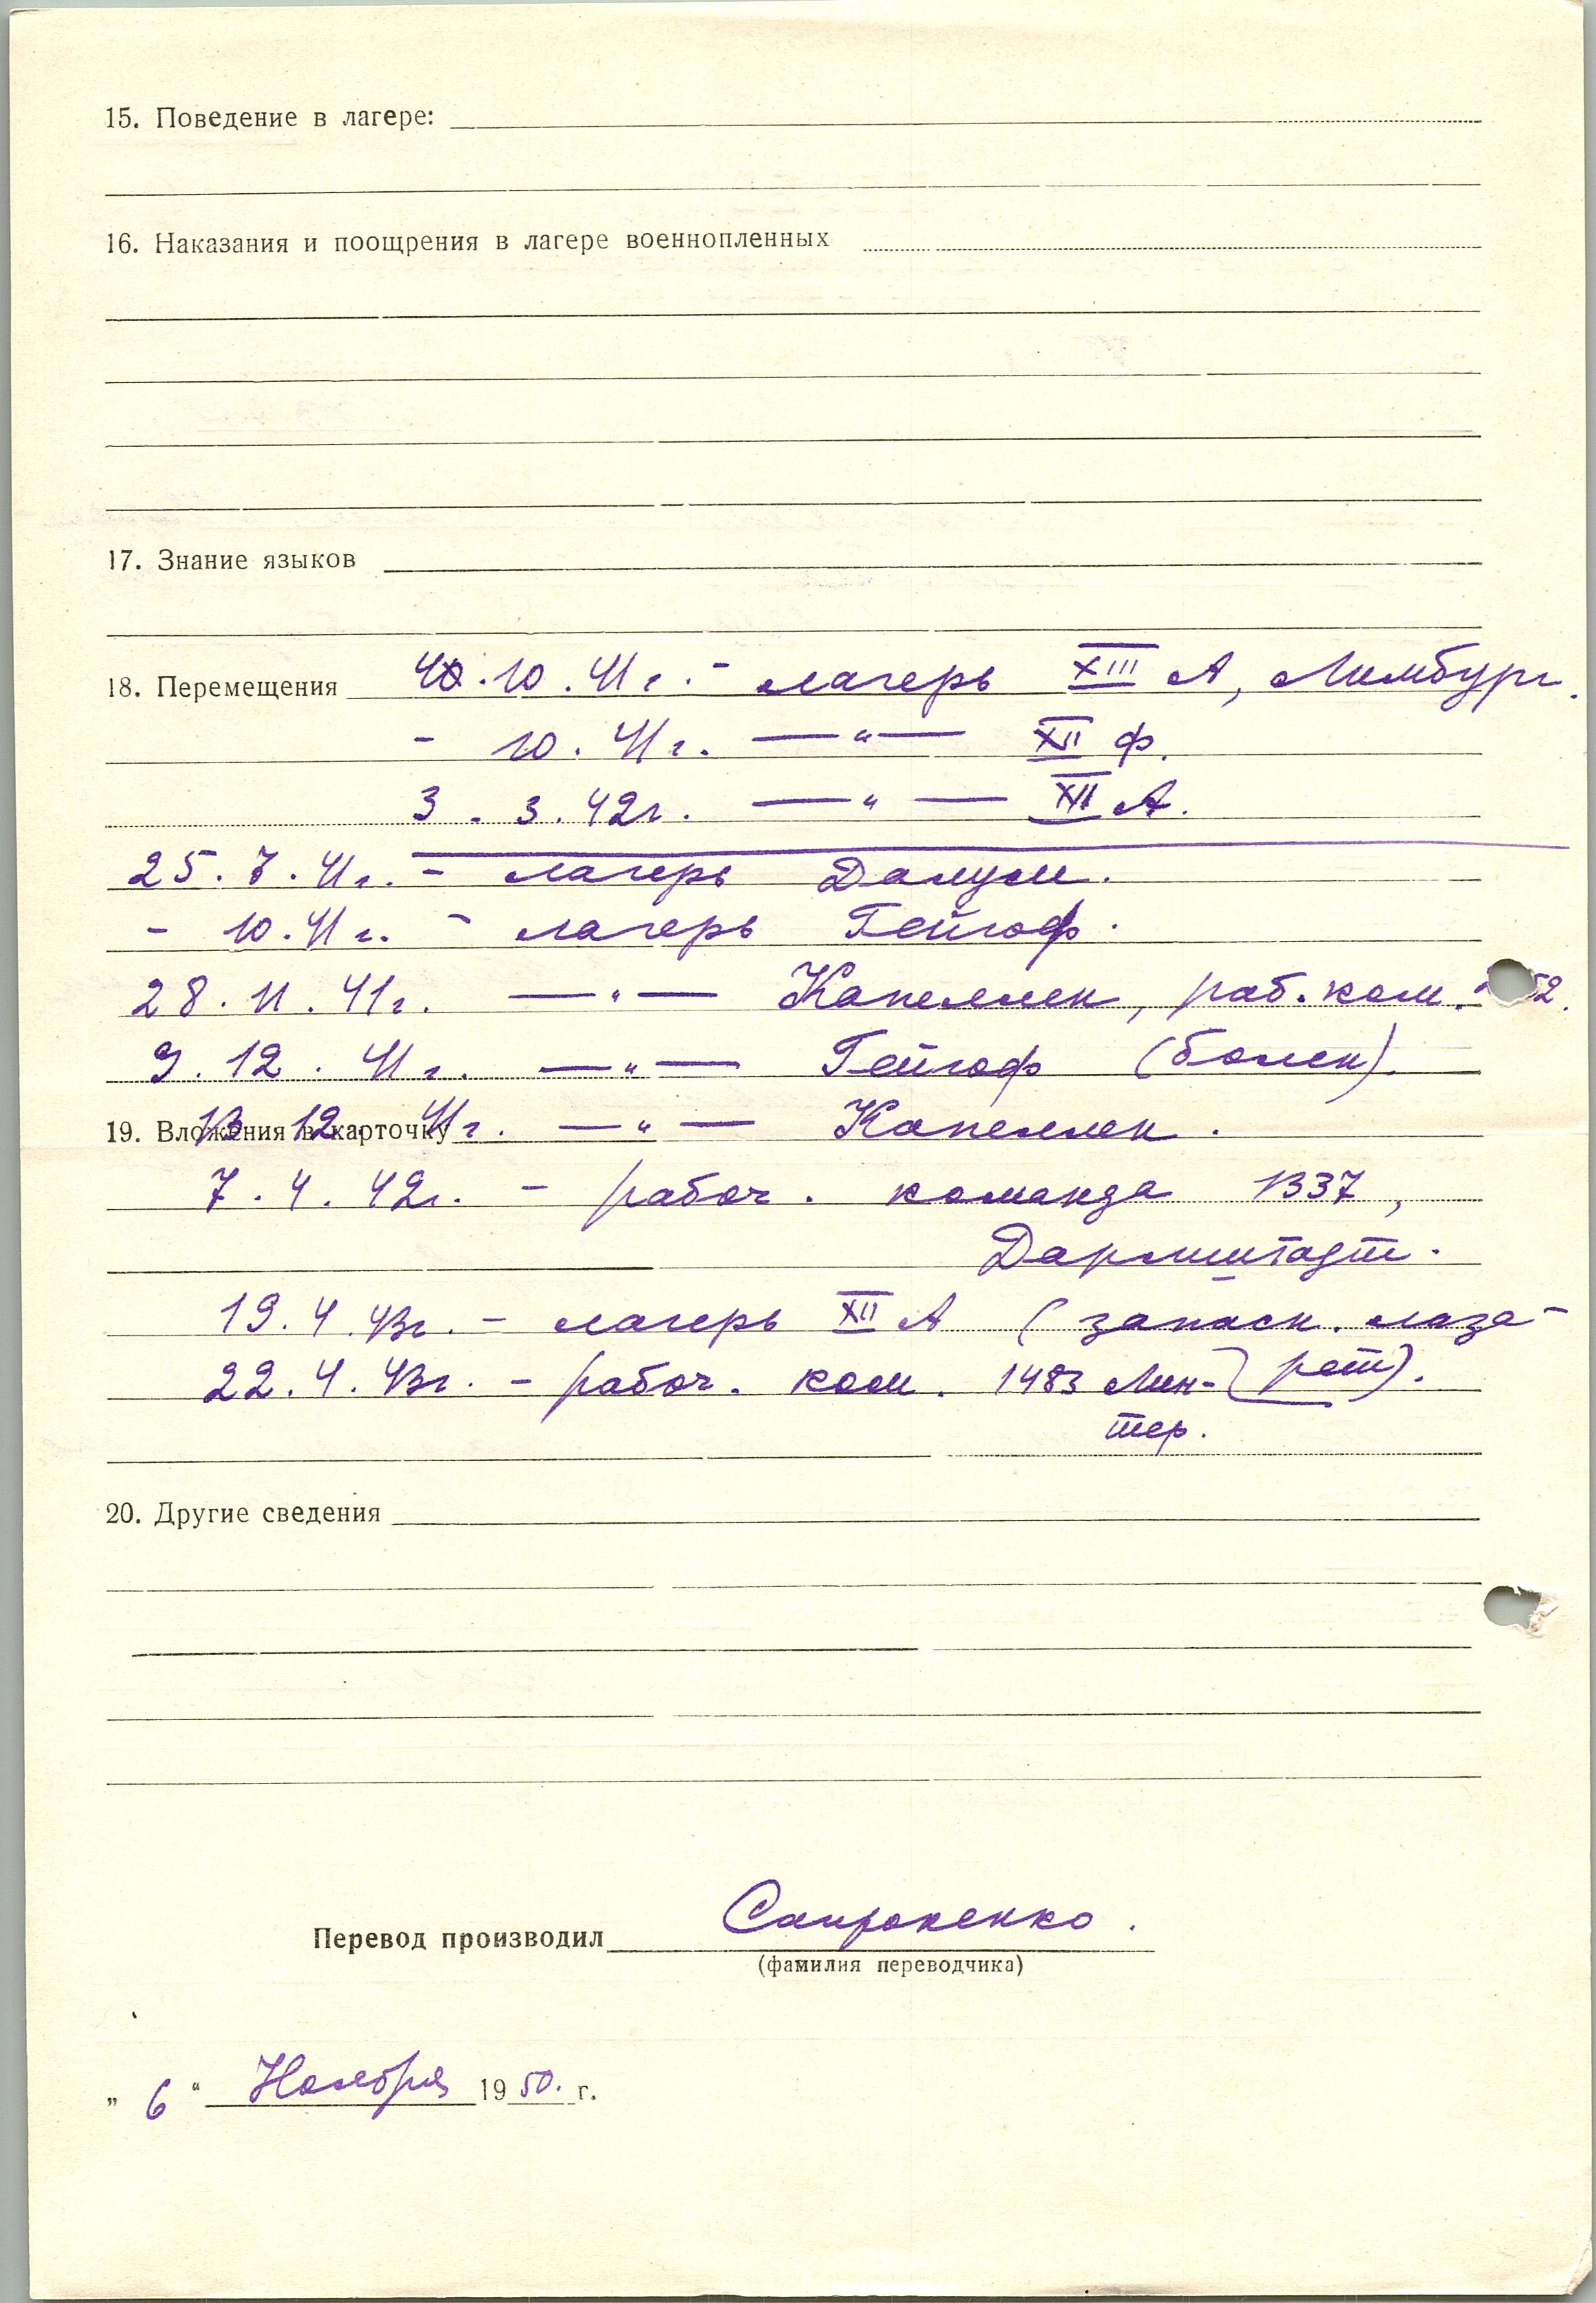 15. Поведение в лагере:
16. Наказания и поощрения в лагере военнопленных
17. Знание языков
18. Перемещения .10.41г. - лагерь XIII А, Лимбург.
- 10.41г. —"— XII Ф.
3.3.42г. —"— XII А.
25.7.41г. - лагерь Далум.
- 10.41г. - лагерь Гейгоф.
28.11.41г. —"— Капеллен, раб. ком. 52.
9.12.41г. —"— Гейгоф (болен).
19. Вложения в карточку
13.12.41г. —"— Капеллен.
7.4.42г. - рабоч. команда 1337,
Дармштадт.
19.4.43г. - лагерь XII А (запасн. лаза-
рет).
22.4.43г. - рабоч. ком. 1483 Мин-
тер.
20. Другие сведения
Перевод производил
(фамилия переводчика)
„ 6 “ Ноября 1950. г.